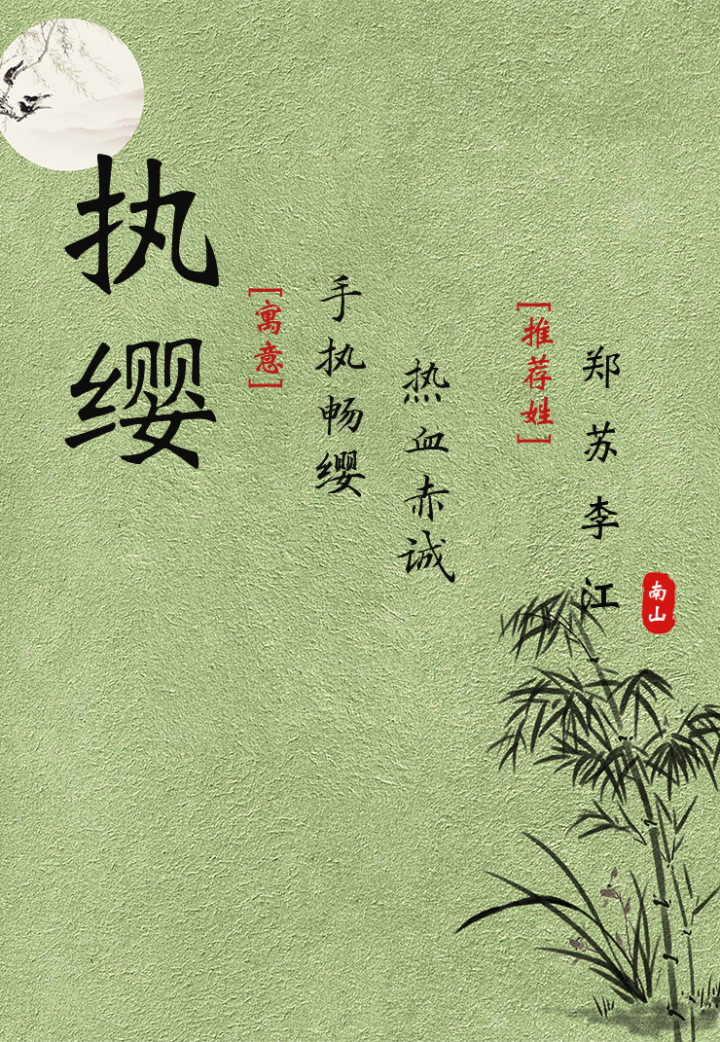 执缨
[寓意]
手执畅缨
热血赤诚
[推荐姓]
郑苏李江
南山